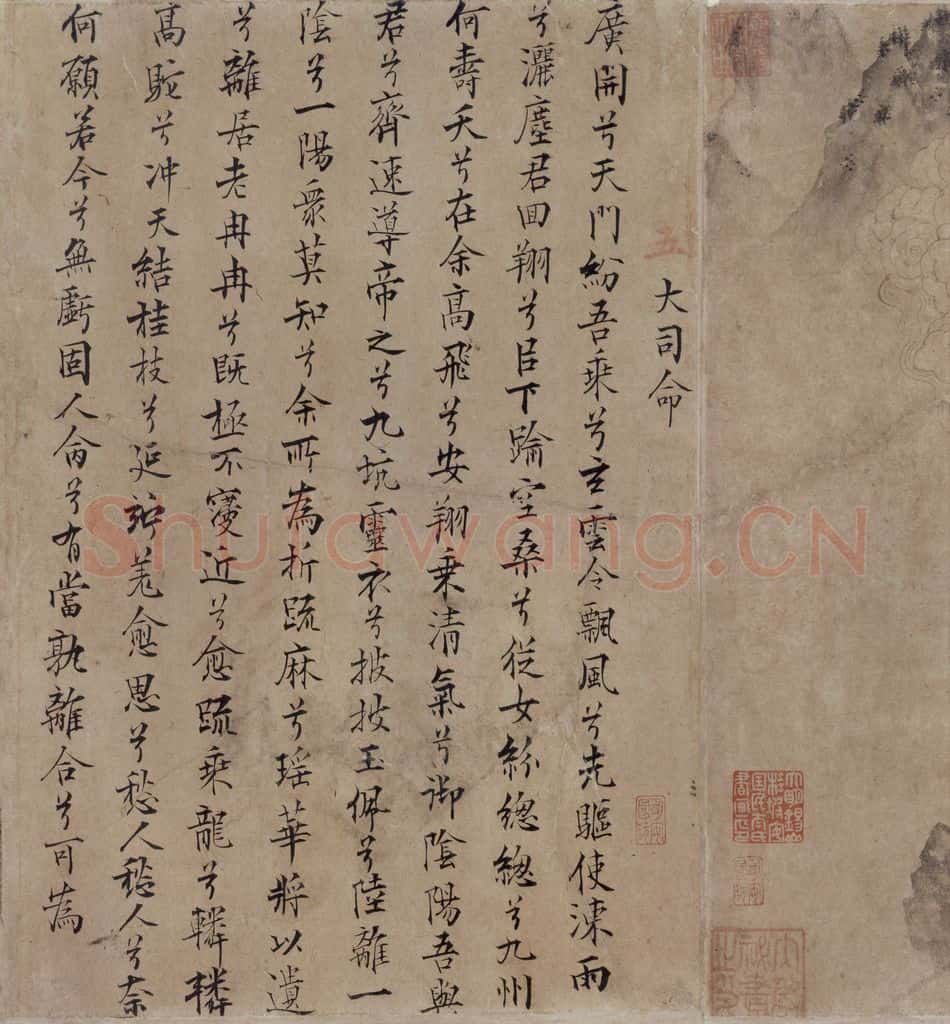 五
大司命
廣開兮天門紛吾乘兮玄雲令飄風兮先驅使涷雨
兮灑塵君回翔兮㠯下踚空桑兮從女紛總總兮九州
何壽夭兮在余高飛兮安翔乘清氣兮御陰陽吾與
君兮齊速導帝之兮九坑靈衣兮披披玉佩兮陸離一
陰兮一陽衆莫知兮余所為折疏麻兮瑶華將以遺
兮離居老冉冉兮既極不寖近兮愈疏乘龍兮轔轔
高駝兮冲天結桂枝兮延竚羌愈思兮愁人愁人兮奈
何願若今兮無虧固人命兮有當孰離合兮可為
Shufawang.CN